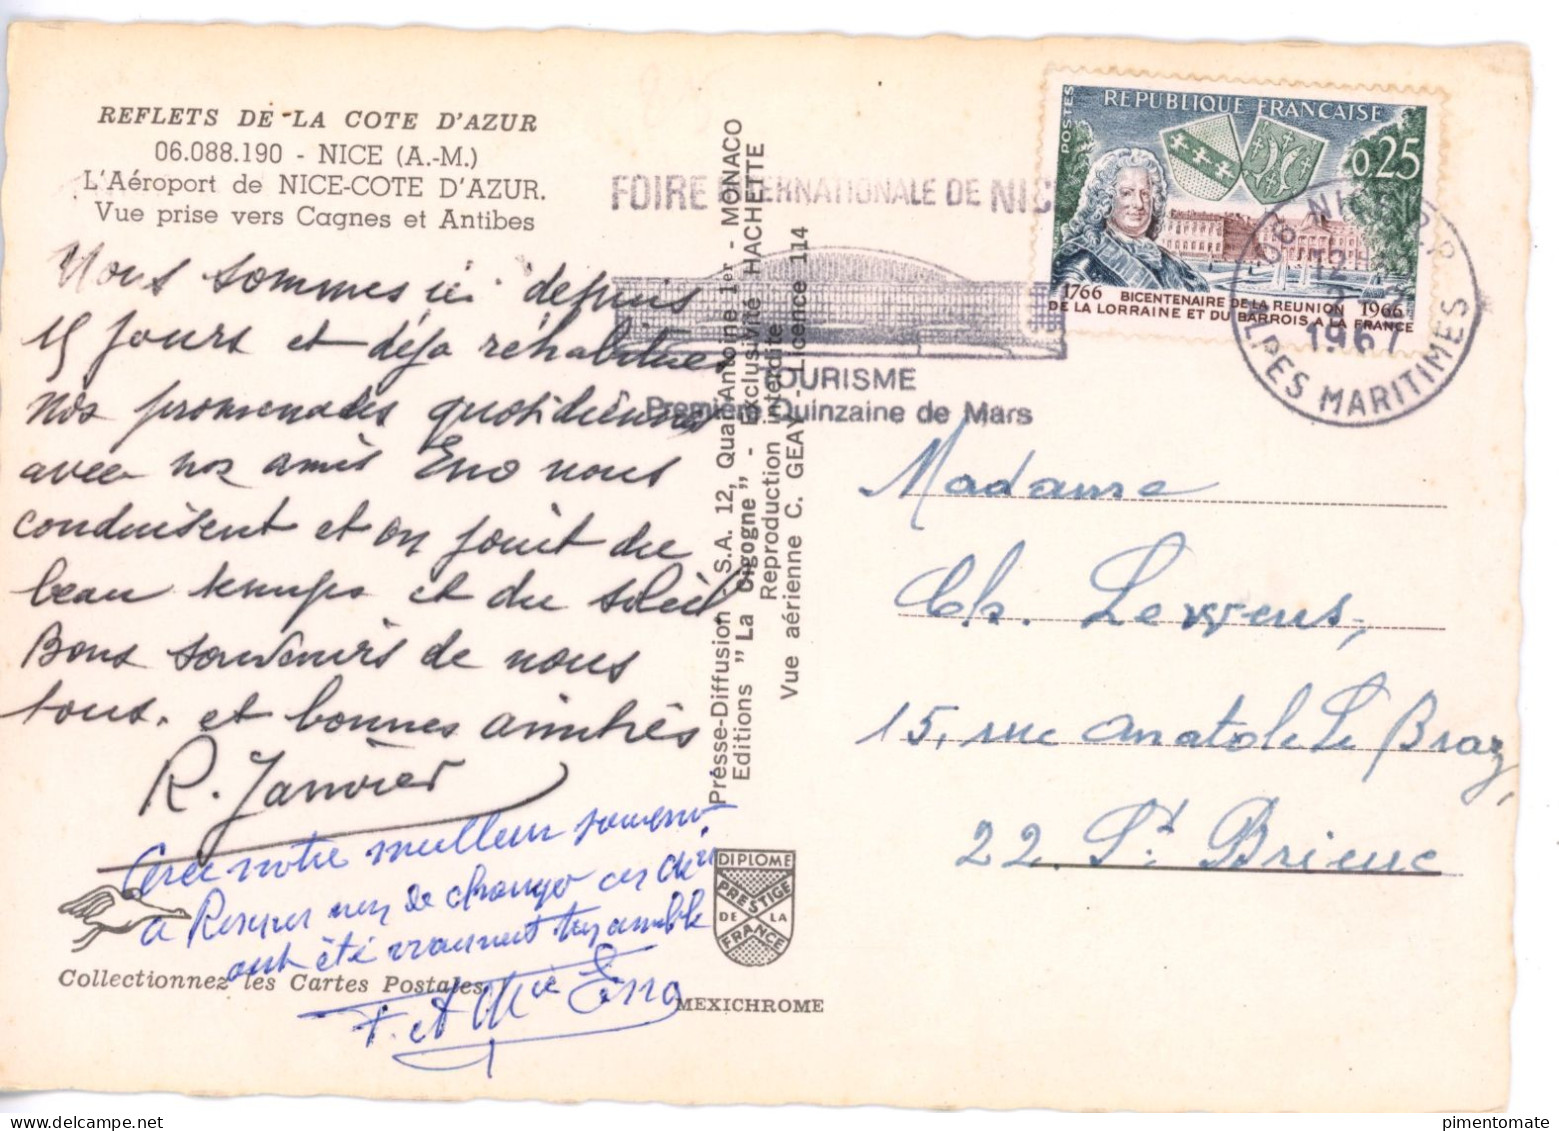 REFLETS DE LA COTE D'AZUR
06.088.190 - NICE (A.-M.)
L'Aéroport de NICE-COTE D'AZUR.
Vue prise vers Cagnes et Antibes
Nous sommes ici depuis
15 jours et déja réhabitués
nos promenades quotidiennes
avec nos amis Eno nous
conduisent et on jouit du
beau temps et du soleil.
Bons souvenirs de nous
tous. et bonnes amitiés
R. Janvier
Avec notre meilleur souvenir
ont été vraiment
F. et A Mie Eno
Collectionnez les Cartes Postales
Presse-Diffusion - S.A. 12, Quai Antoine 1er - MONACO
Editions "La Cigogne" - Exclusivité HACHETTE
Reproduction interdite
Vue aérienne C. GEAY - Licence 114
DIPLOME
PRESTIGE
DE LA
FRANCE
MEXICHROME
FOIRE INTERNATIONALE DE NICE
TOURISME
Première Quinzaine de Mars
POSTES
REPUBLIQUE FRANÇAISE
0,25
1766 BICENTENAIRE DE LA REUNION 1966
DE LA LORRAINE ET DU BARROIS A LA FRANCE
06 NICE R.P.
1967
ALPES MARITIMES
Madame
Ch. Levveus,
15, rue Anatole Le Braz,
22. St Brieuc
pimentomate